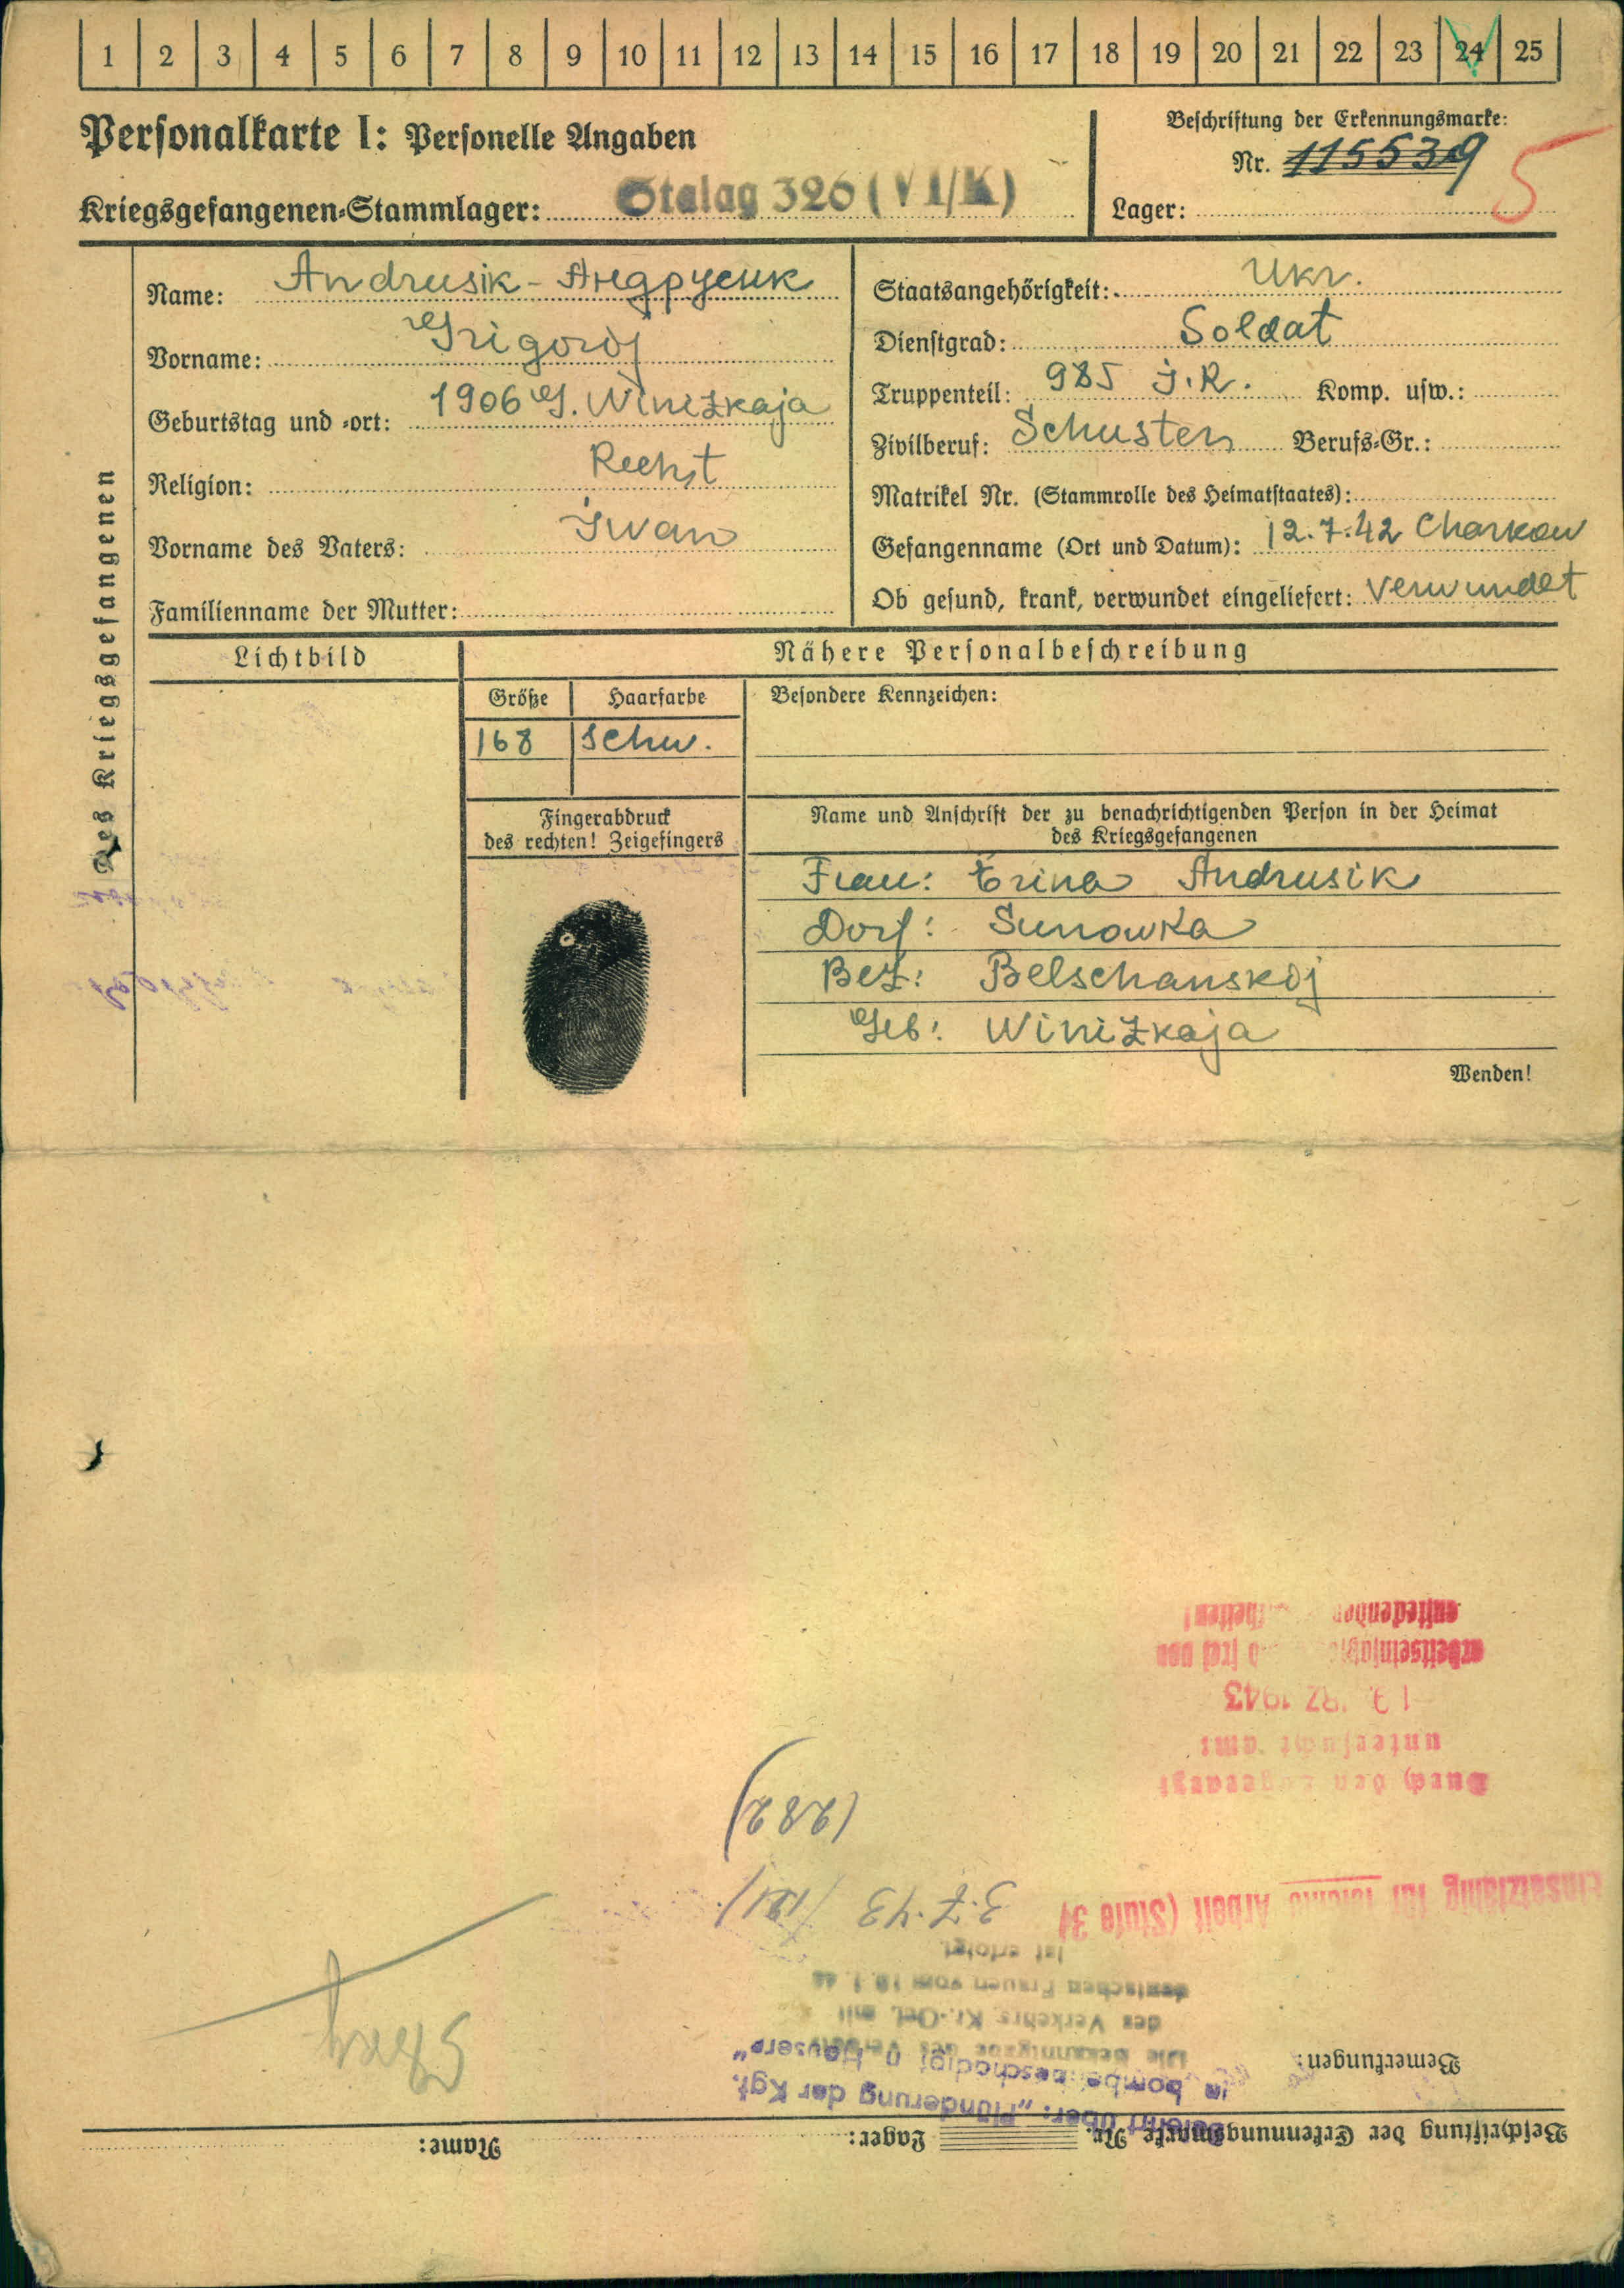 1 2 3 4 5 6 7 8 9 10 11 12 13 14 15 16 17 18 19 20 21 22 23 24 25
Personalkarte I: Personelle Angaben
Kriegsgefangenen-Stammlager: Stalag 326 (VI/K)
Beschriftung der Erkennungsmarke:
Nr. 115539
Lager:
5
Des Kriegsgefangenen
Name: Andrusik - Андрусик
Vorname: Grigorij
Geburtstag und -ort: 1906 G. Winizkaja
Religion:
Vorname des Vaters: Iwan
Familienname der Mutter:
Staatsangehörigkeit: Ukr.
Dienstgrad: Soldat
Truppenteil: 985 J.R. Komp. usw.:
Zivilberuf: Schuster Berufs-Gr.:
Matrikel Nr. (Stammrolle des Heimatstaates):
Gefangenname (Ort und Datum): 12.7.42 Charkow
Ob gesund, krank, verwundet eingeliefert: verwundet
Lichtbild
Nähere Personalbeschreibung
Größe Haarfarbe
168 schw.
Besondere Kennzeichen:
Fingerabdruck
des rechten! Zeigefingers
Name und Anschrift der zu benachrichtigenden Person in der Heimat
des Kriegsgefangenen
Frau: Erina Andrusik
Dorf: Sunowka
Bez: Belschanskoj
Geb: Winizkaja
Wenden!
Beschriftung der Erkennungsmarke Nr. Lager: Name:
Belehrt über: "Plünderung der Kgf.
in bombenbeschädigt. Häusern"
Bemerkungen:
Die Bekanntgabe des Verbots
des Verkehrs Kr.-Gef. mit
deutschen Frauen vom
ist erfolgt.
Einsatzfähig für leichte Arbeit (Stufe 3)
3.7.43
(282)
Durch den Lagerarzt
untersucht am:
1943
arbeitseinsatzfähig frei von
ansteckenden Krankheiten!